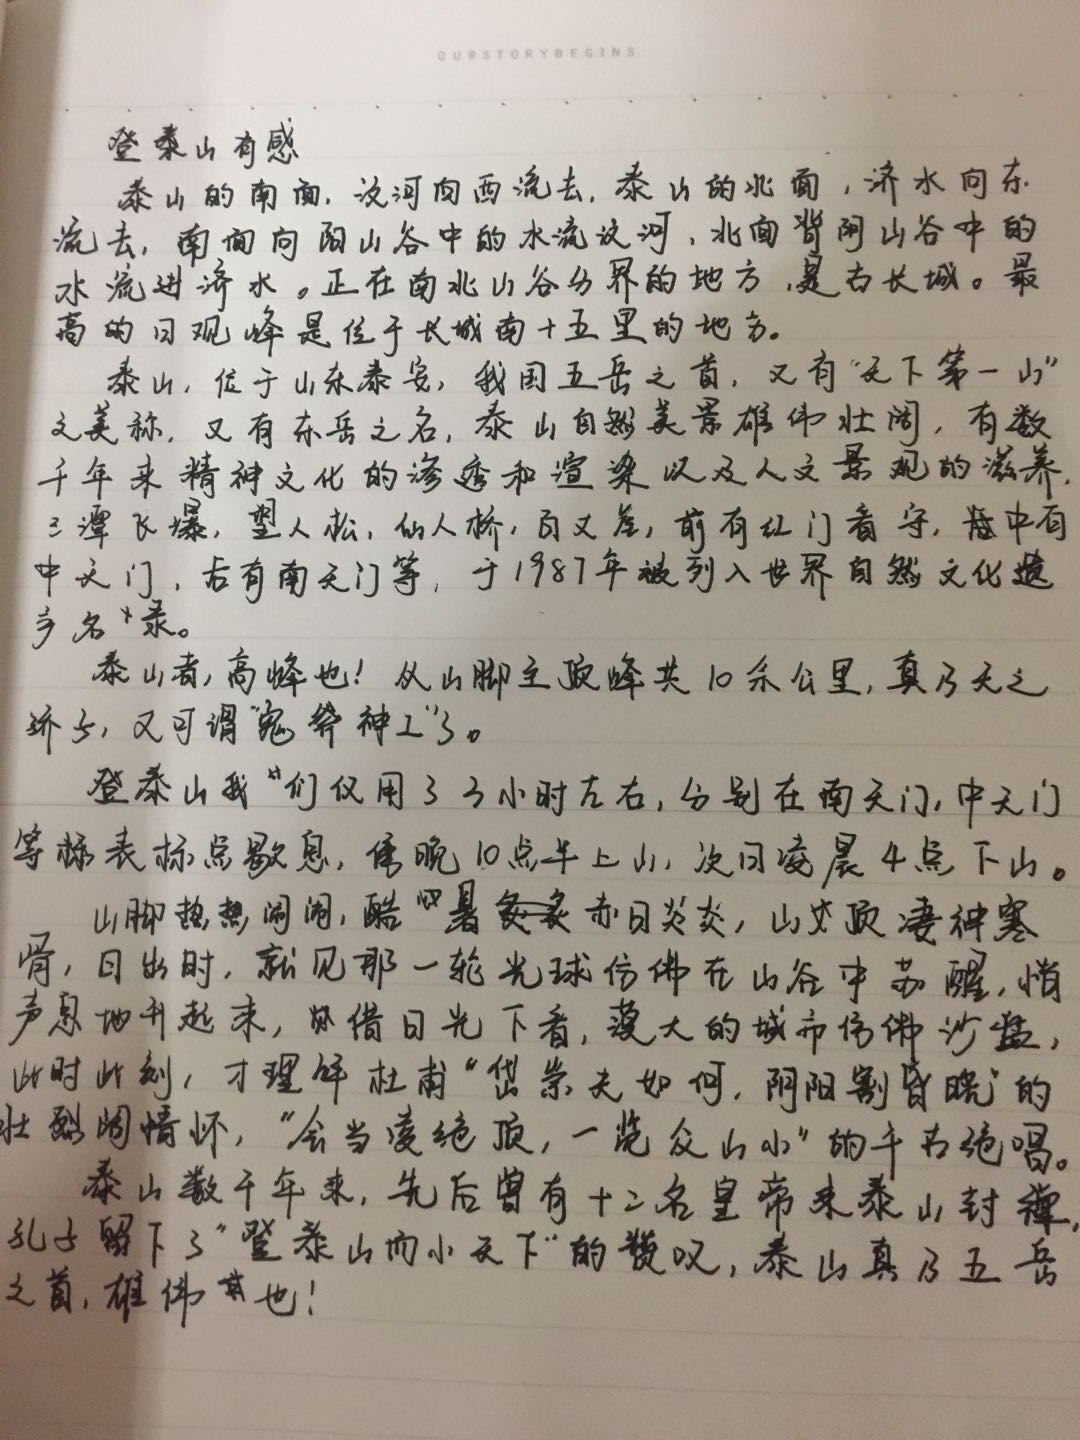 OURSTORYBEGINS
登泰山有感
泰山的南面，汶河向西流去，泰山的北面，济水向东
流去，南面向阳山谷中的水流汶河，北面背阴山谷中的
水流进济水。正在南北山谷分界的地方，是古长城。最
高的日观峰是位于长城南十五里的地方。
泰山，位于山东泰安，我国五岳之首，又有“天下第一山”
之美称，又有东岳之名，泰山自然美景雄伟壮阔，有数
千年来精神文化的渗透和渲染以及人文景观的滋养，
三潭飞瀑，望人松，仙人桥，百丈崖，前有红门看守，途中有
中天门，古有南天门等，于1987年被列入世界自然文化遗
产名录。
泰山者，高峰也！从山脚至顶峰共10余公里，真乃天之
骄子，又可谓“鬼斧神工”了。
登泰山我们仅用了3小时左右，分别在南天门，中天门
等标表标点歇息，傍晚10点半上山，次日凌晨4点下山。
山脚热热闹闹，酷暑赤日炎炎，山顶凄神寒
骨，日出时，就见那一轮光球仿佛在山谷中苏醒，悄
声息地升起来，借日光下看，漠大的城市仿佛沙盘，
此时此刻，才理解杜甫“岱崇夫如何，阴阳割昏晓”的
壮阔情怀，“会当凌绝顶，一览众山小”的千古绝唱。
泰山数千年来，先后曾有十二名皇帝来泰山封禅，
孔子留下了“登泰山而小天下”的赞叹，泰山真乃五岳
之首，雄伟也！